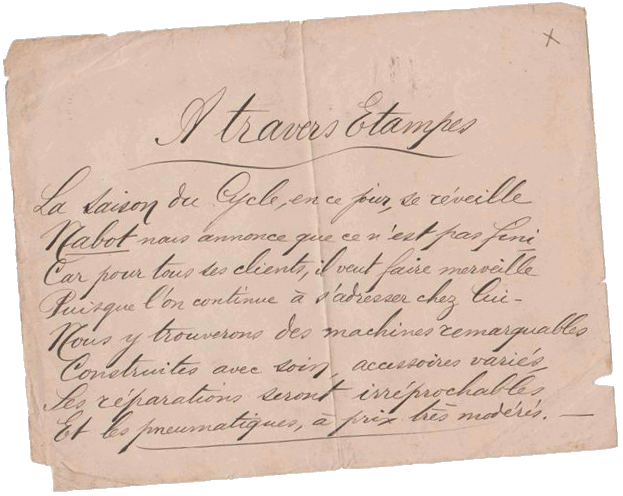 x
A travers Etampes
La saison du Cycle, en ce jour, se réveille
Nabot nous annonce que ce n'est pas fini
Car pour tous ses clients, il veut faire merveille
Puisque l'on continue à s'adresser chez lui -
Nous y trouverons des machines remarquables
Construites avec soin, accessoires variés,
Les réparations seront irréprochables
Et les pneumatiques, à prix très modérés. —